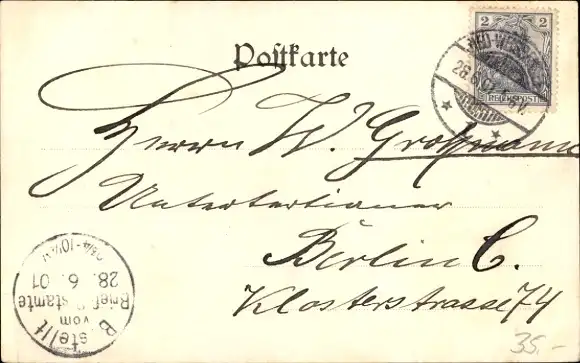 Postkarte
2
REICHSPOST
Herrn W. Großmann
Untertertianer
Berlin C.
Klosterstrasse 74
Bestellt
vom
Briefpostamte
28. 6. 01
35.-